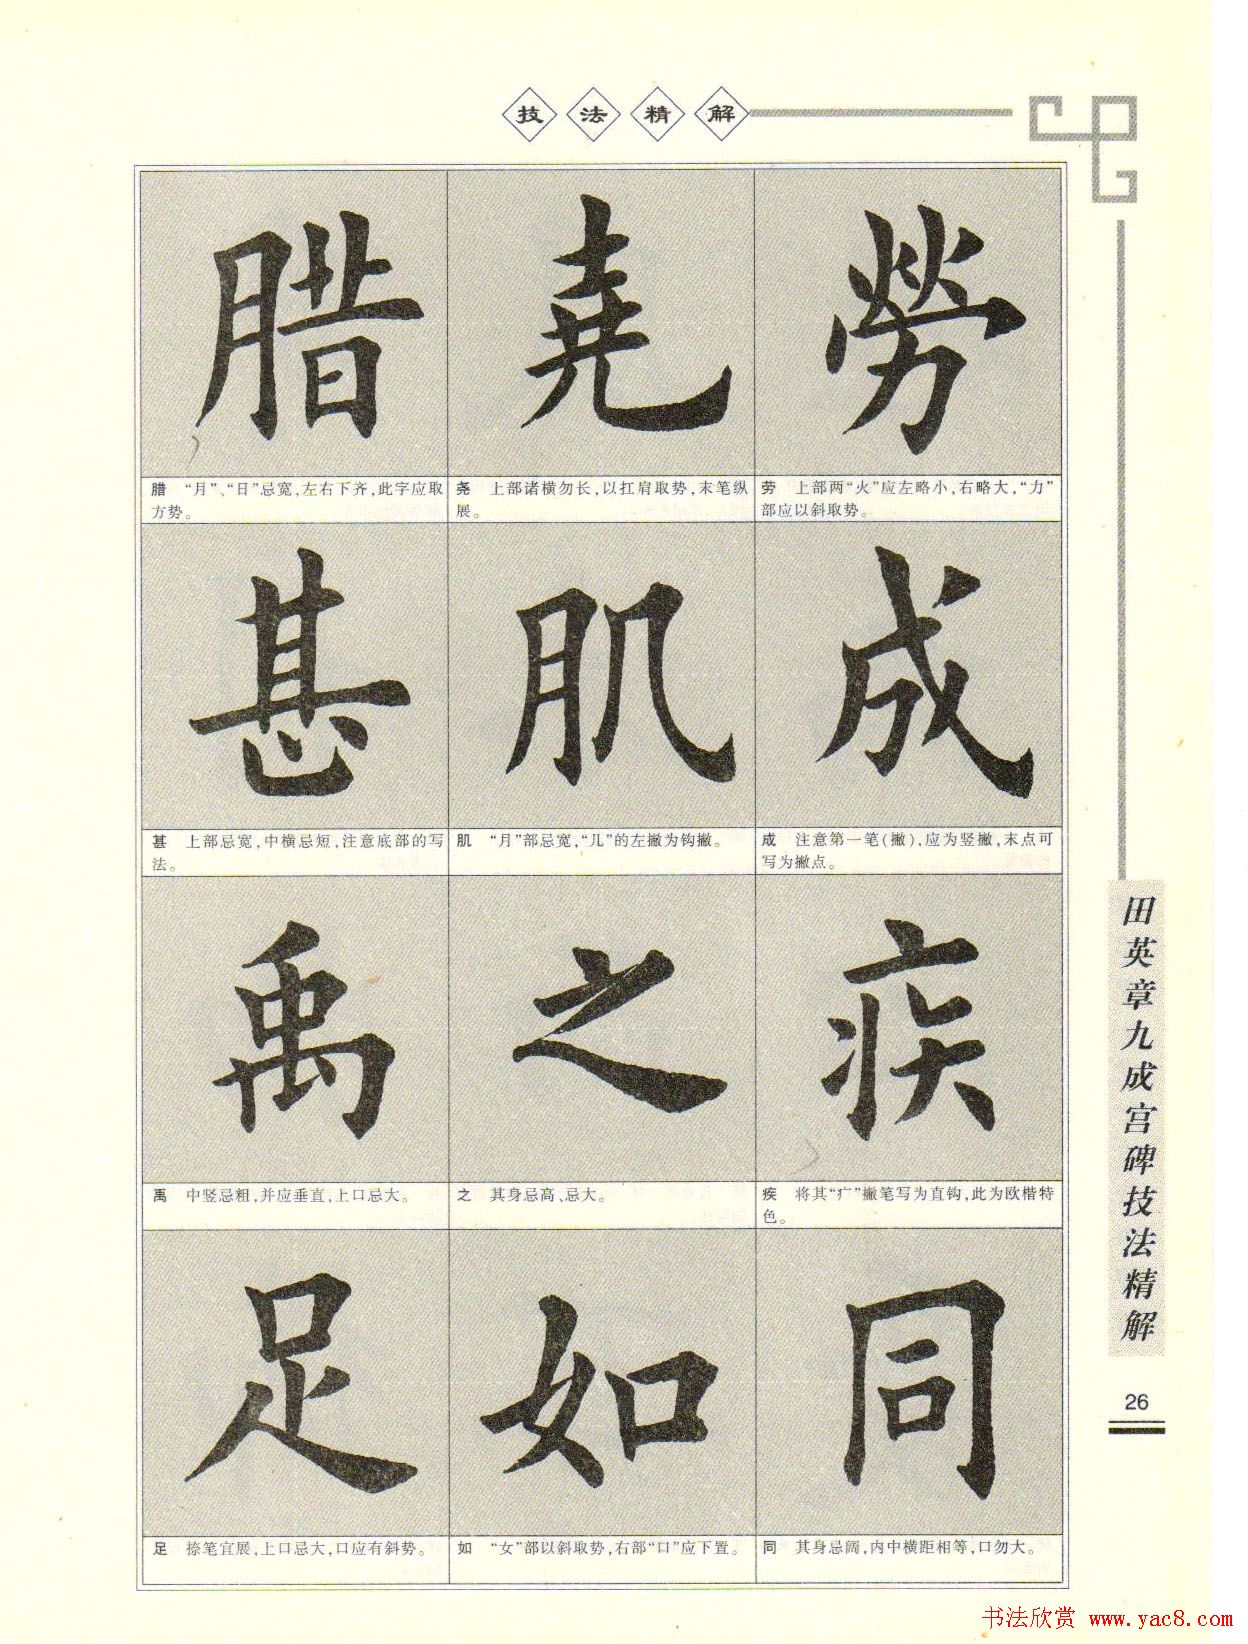 技法精解
腊 尧 劳
腊 “月”、“日”忌宽,左右下齐,此字应取
方势。
尧 上部诸横勿长,以扛肩取势,末笔纵
展。
劳 上部两“火”应左略小,右略大,“力”
部应以斜取势。
甚 肌 成
甚 上部忌宽,中横忌短,注意底部的写
法。
肌 “月”部忌宽,“几”的左撇为钩撇。
成 注意第一笔(撇),应为竖撇,末点可
写为撇点。
禹 之 疾
禹 中竖忌粗,并应垂直,上口忌大。
之 其身忌高、忌大。
疾 将其“疒”撇笔写为直钩,此为欧楷特
色。
足 如 同
足 捺笔宜展,上口忌大,口应有斜势。
如 “女”部以斜取势,右部“口”应下置。
同 其身忌阔,内中横距相等,口勿大。
田英章九成宫碑技法精解
26
书法欣赏 www.yac8.com